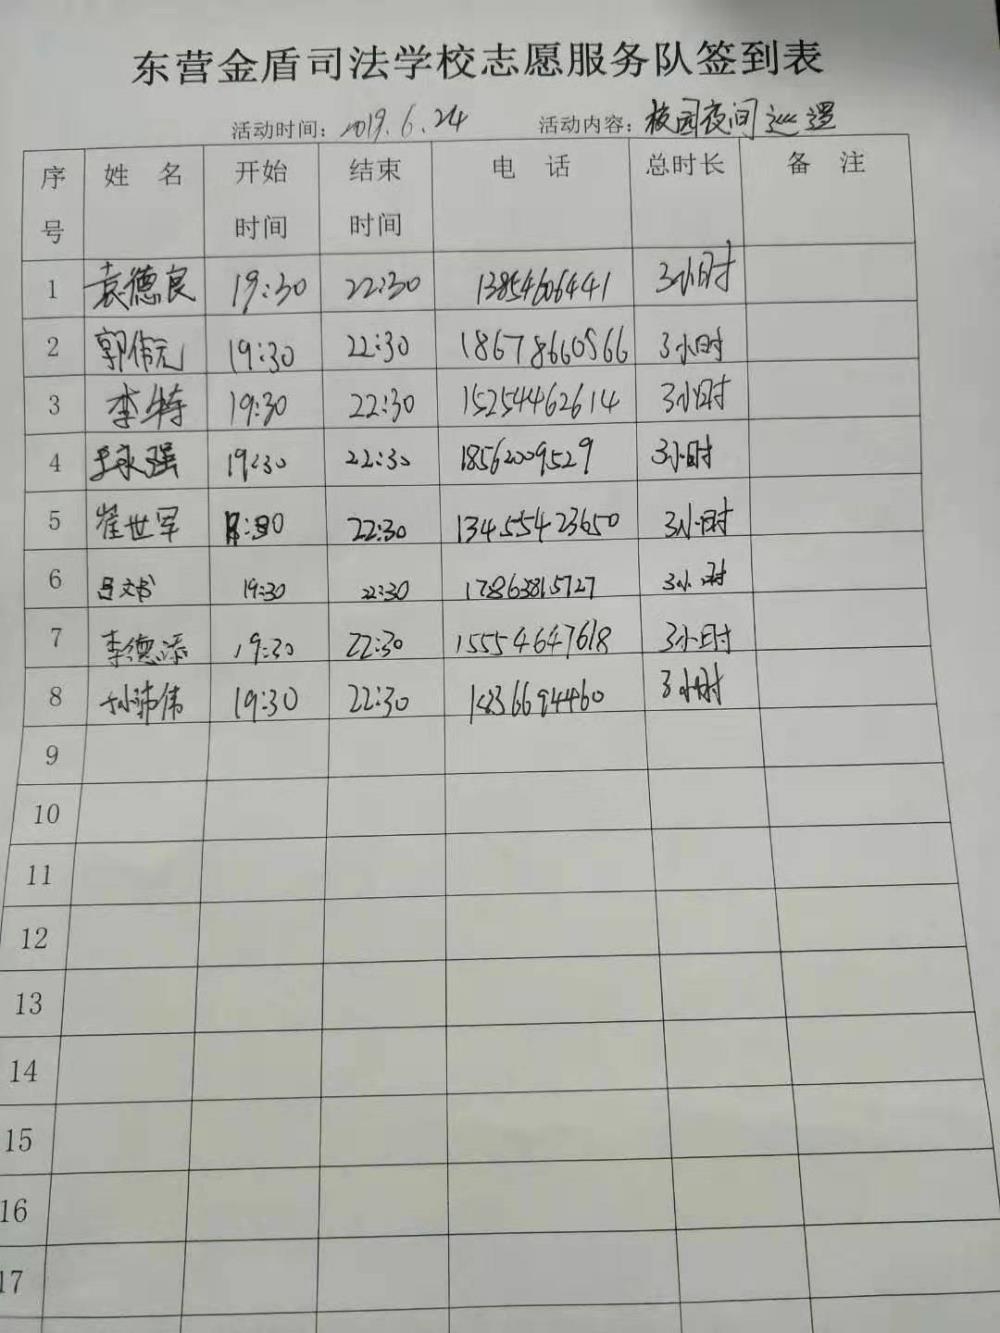 东营金盾司法学校志愿服务队签到表
活动时间：2019.6.24 活动内容：校园夜间巡逻
序号 姓名 开始时间 结束时间 电话 总时长 备注
1 袁德良 19:30 22:30 13854606441 3小时
2 郭伟元 19:30 22:30 18678660566 3小时
3 李特 19:30 22:30 15254462614 3小时
4 永强 19:30 22:30 18562009529 3小时
5 崔世军 22:30 13455423650 3小时
6 吕文书 19:30 22:30 17863815727 3小时
7 李德添 19:30 22:30 15554647618 3小时
8 伟 19:30 22:30 18366944460 3小时
9
10
11
12
13
14
15
16
17